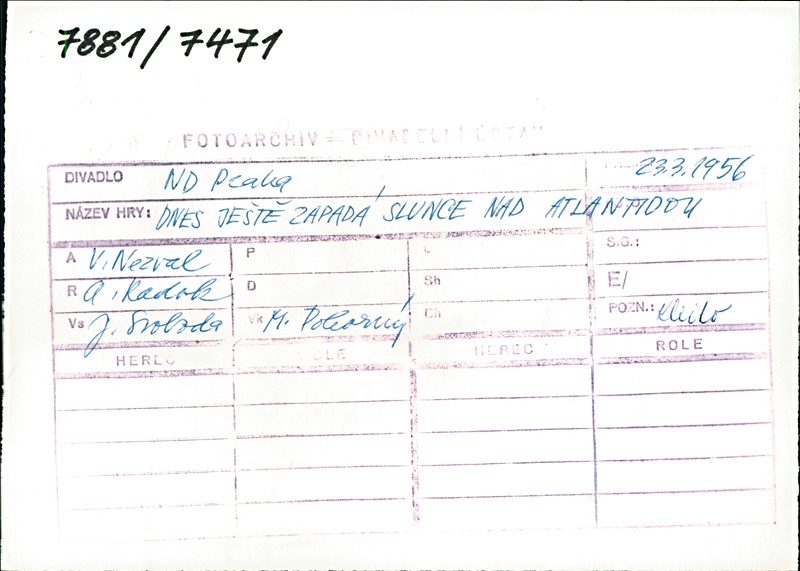 7881/7471
FOTOARCHIV – DIVADELNÍ ÚSTAV
DIVADLO ND Praha 23.3.1956
NÁZEV HRY: DNES JEŠTĚ ZAPADÁ SLUNCE NAD ATLANTIDOU
A V. Nezval P L SIG.:
R A. Radok D Sh E/
Vs J. Svoboda Vk M. Pokorný Ch POZN.:
HEREC ROLE HEREC ROLE